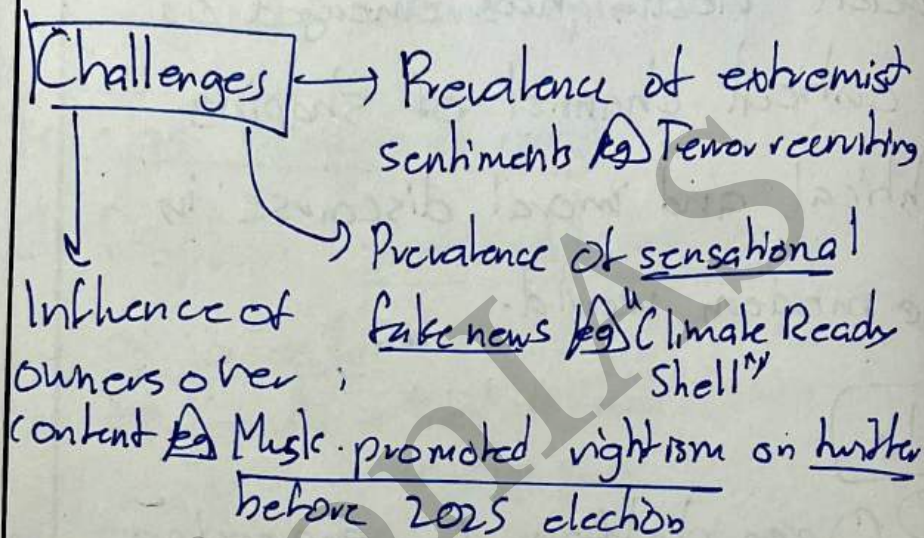 Challenges → Prevalence of extremist
sentiments eg Terror recruiting
→ Prevalence of sensational
fake news eg "Climate Ready
Shell"
Influence of
owners over
content eg Musk promoted rightism on twitter
before 2025 election
onIAS